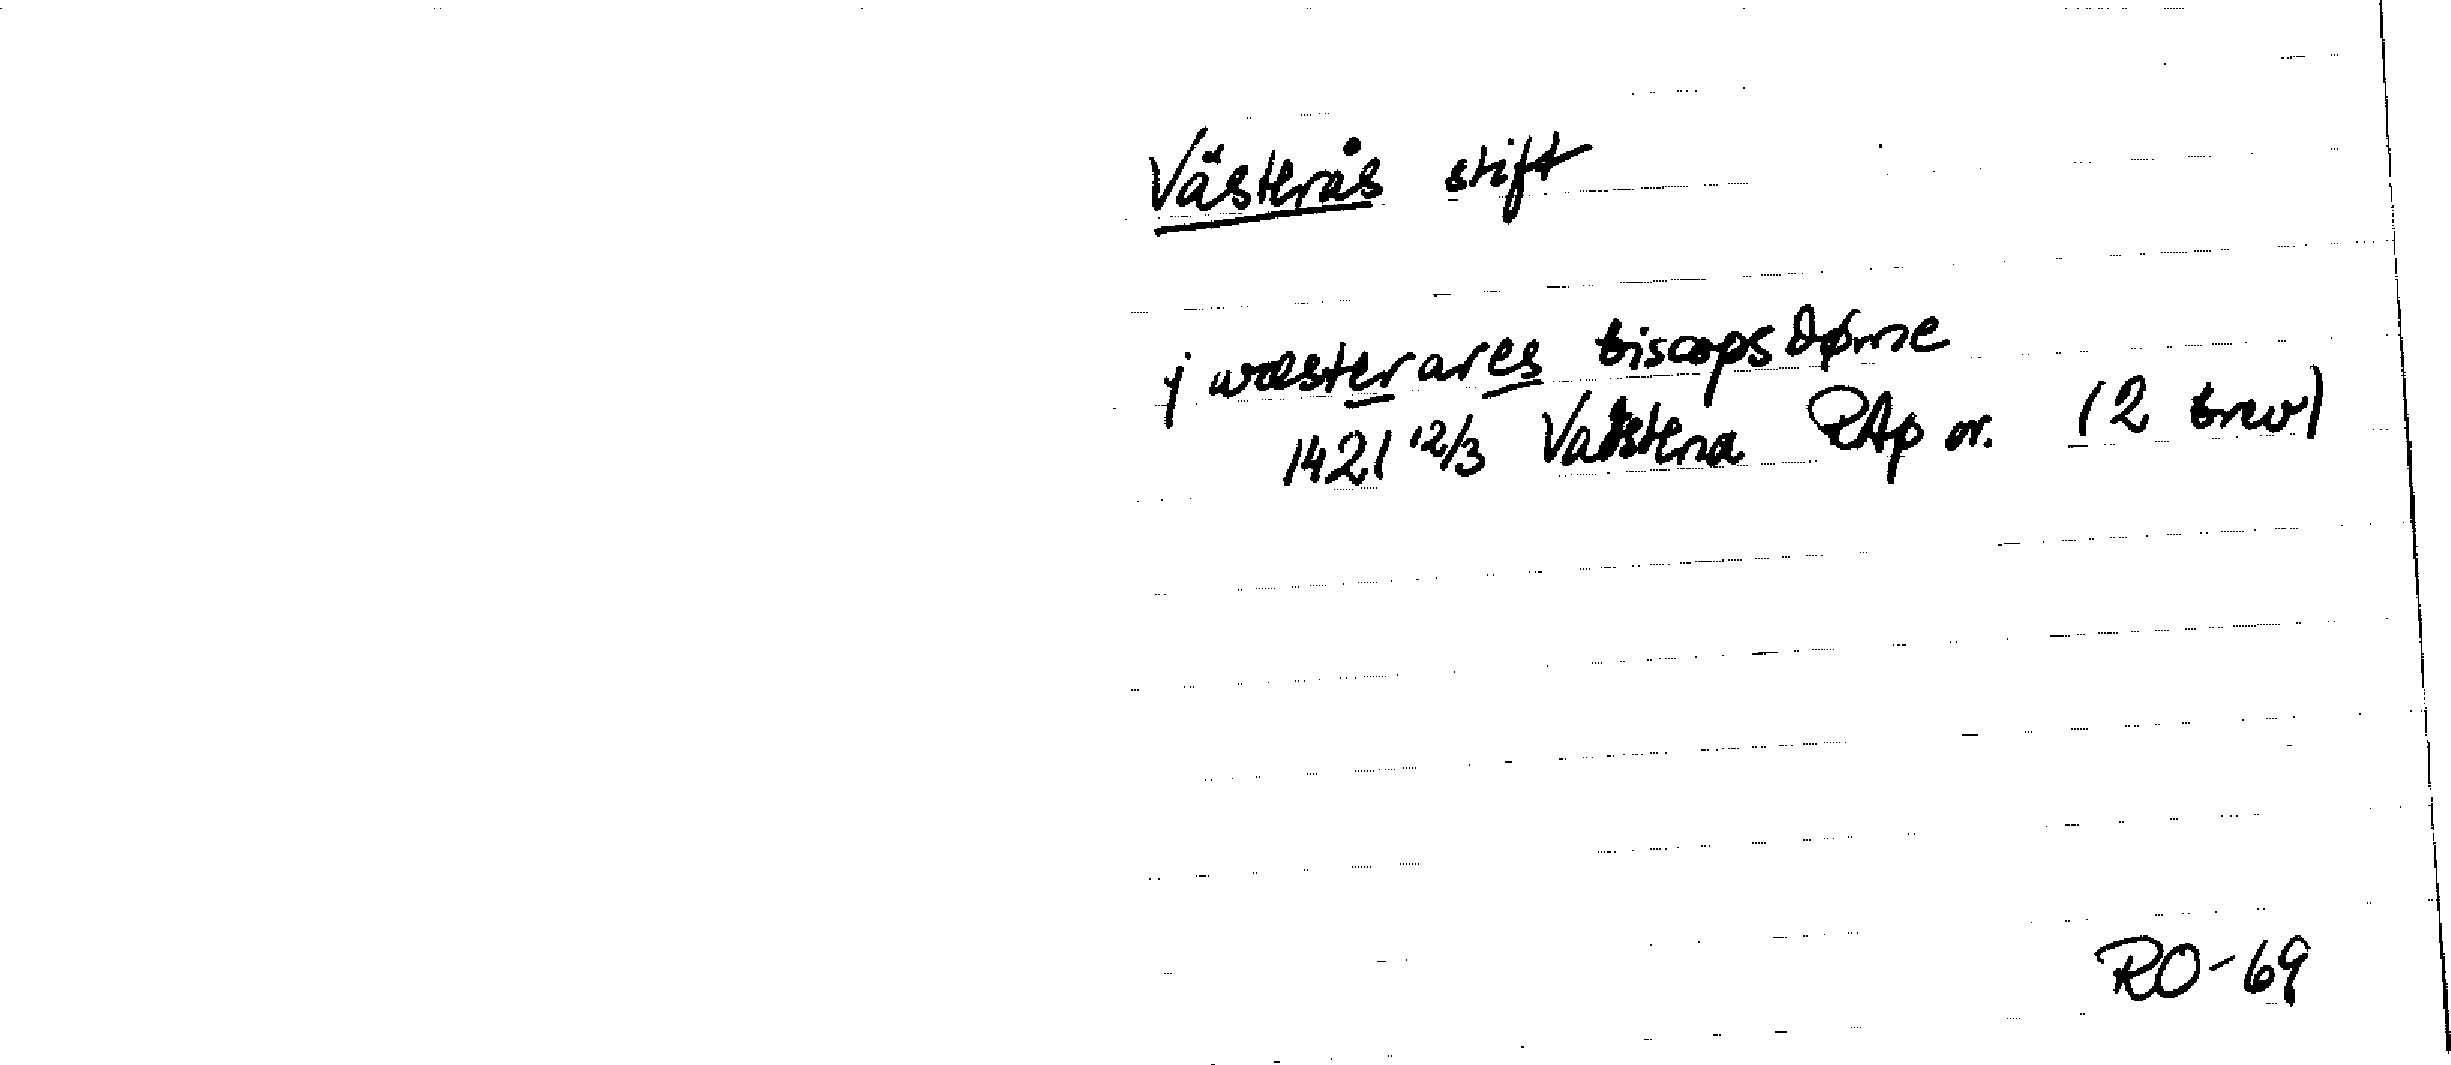 Västerås stift
j wæsterares biscopsdøme
1421 12/3 Vadstena RAp or. (2 brev)
RO-69